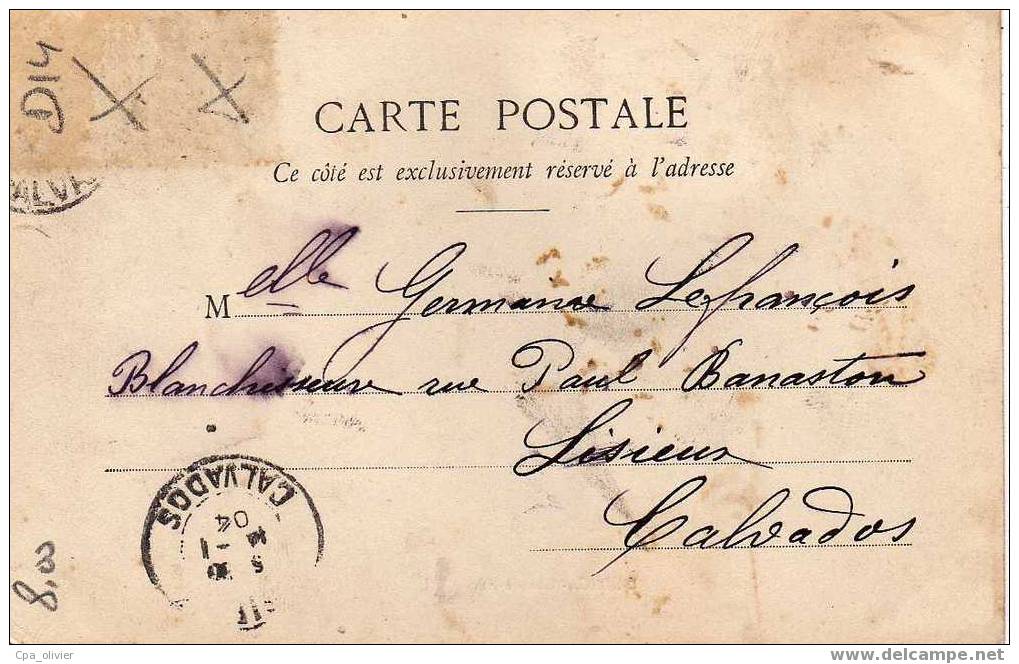 D14
X X
CARTE POSTALE
Ce côté est exclusivement réservé à l'adresse
Melle Germaine Lefrançois
Blanchisseuse rue Paul Banaston
Lisieux
Calvados
CALVADOS
04
8,3
Cpa_olivier
www.delcampe.net